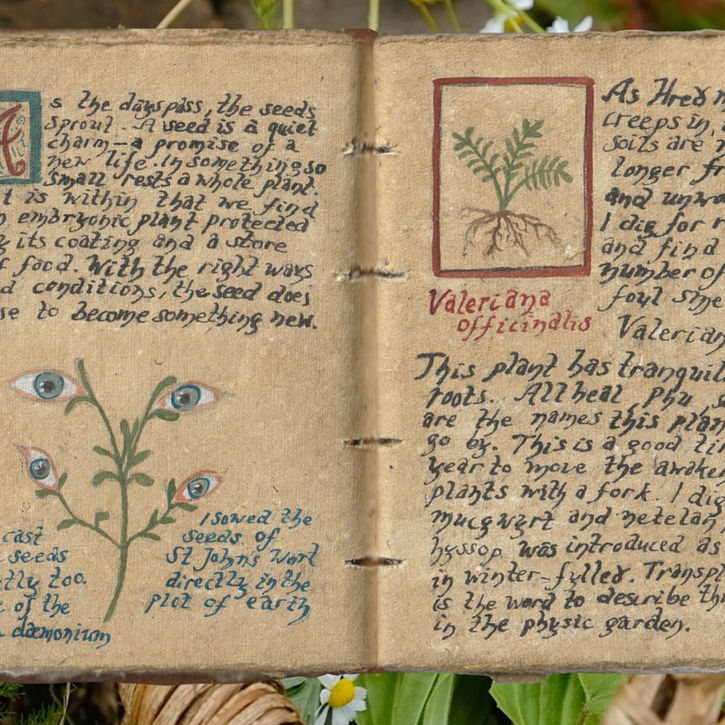 A
s the days pass, the seeds
sprout. A seed is a quiet
charm—a promise of a
new life. In something so
small rests a whole plant.
t is within that we find
embryonic plant protected
its coating and a store
food. With the right ways
conditions, the seed does
to become something new.
cast
seeds
too.
of the
dæmonium
I sowed the
seeds of
St John's Wort
directly in the
plot of earth
Valeriana
officinalis
As Hred
creeps in,
soils are
longer
and
I dig for
and find
number of
foul
Valerian
This plant has
roots. All heal, Phu,
are the names this
go by. This is a good
year to move the
plants with a fork. I dig
mucgwyrt and
hyssop was introduced as
in winter-fylleð.
is the word to describe
in the physic garden.